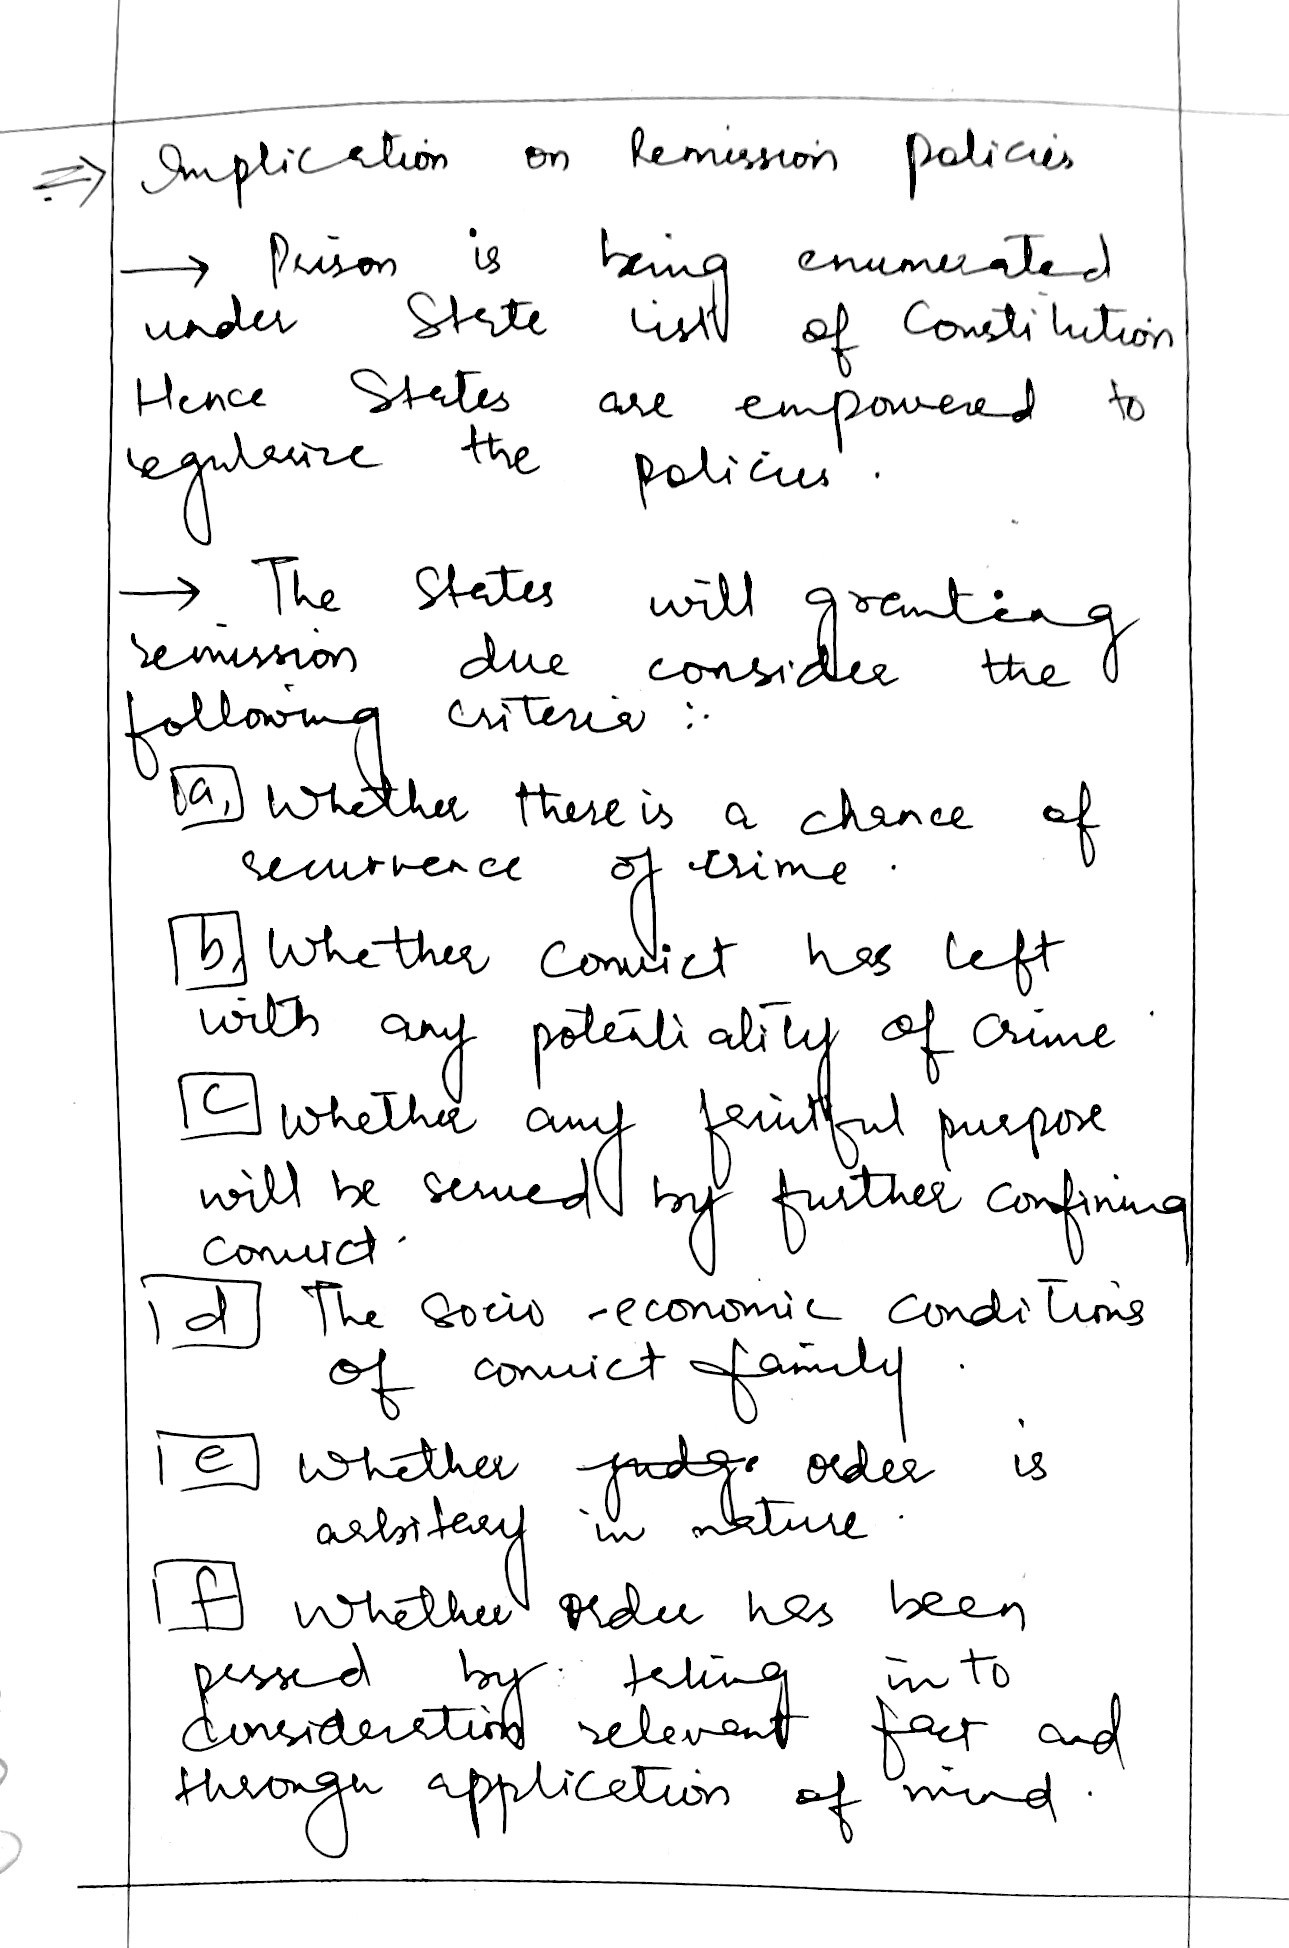 ⇒ Implication on Remission policies
→ Prison is being enumerated
under State list of Constitution
Hence States are empowered to
regularize the policies.
→ The States will granting
remission due consider the
following criteria :-
a, Whether there is a chance of
recurrence of crime.
b, Whether convict has left
with any potentiality of crime.
c Whether any fruitful purpose
will be served by further confining
convict.
d The socio-economic conditions
of convict family.
e Whether judge order is
arbitery in nature.
f Whether order has been
passed by taking in to
consideration relevant fact and
through application of mind.